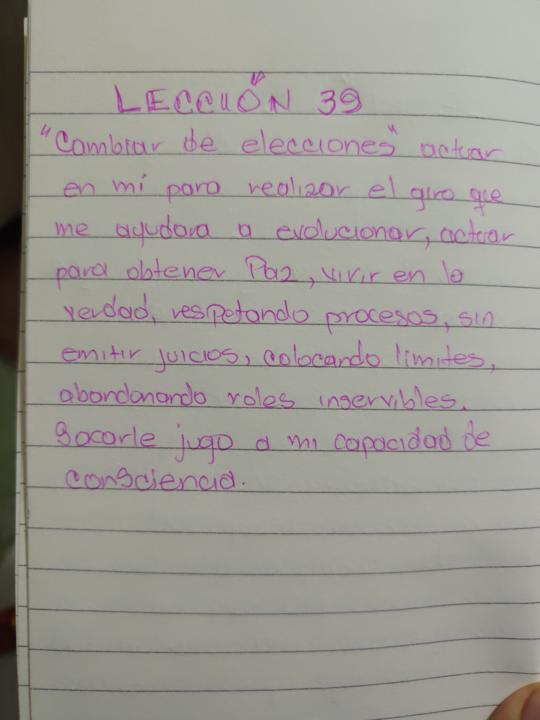 LECCIÓN 39
"Cambiar de elecciones" actuar
en mí para realizar el giro que
me ayudara a evolucionar, actuar
para obtener Paz, vivir en la
verdad, respetando procesos, sin
emitir juicios, colocando limites,
abandonando roles inservibles.
Sacarle jugo a mi capacidad de
consciencia.